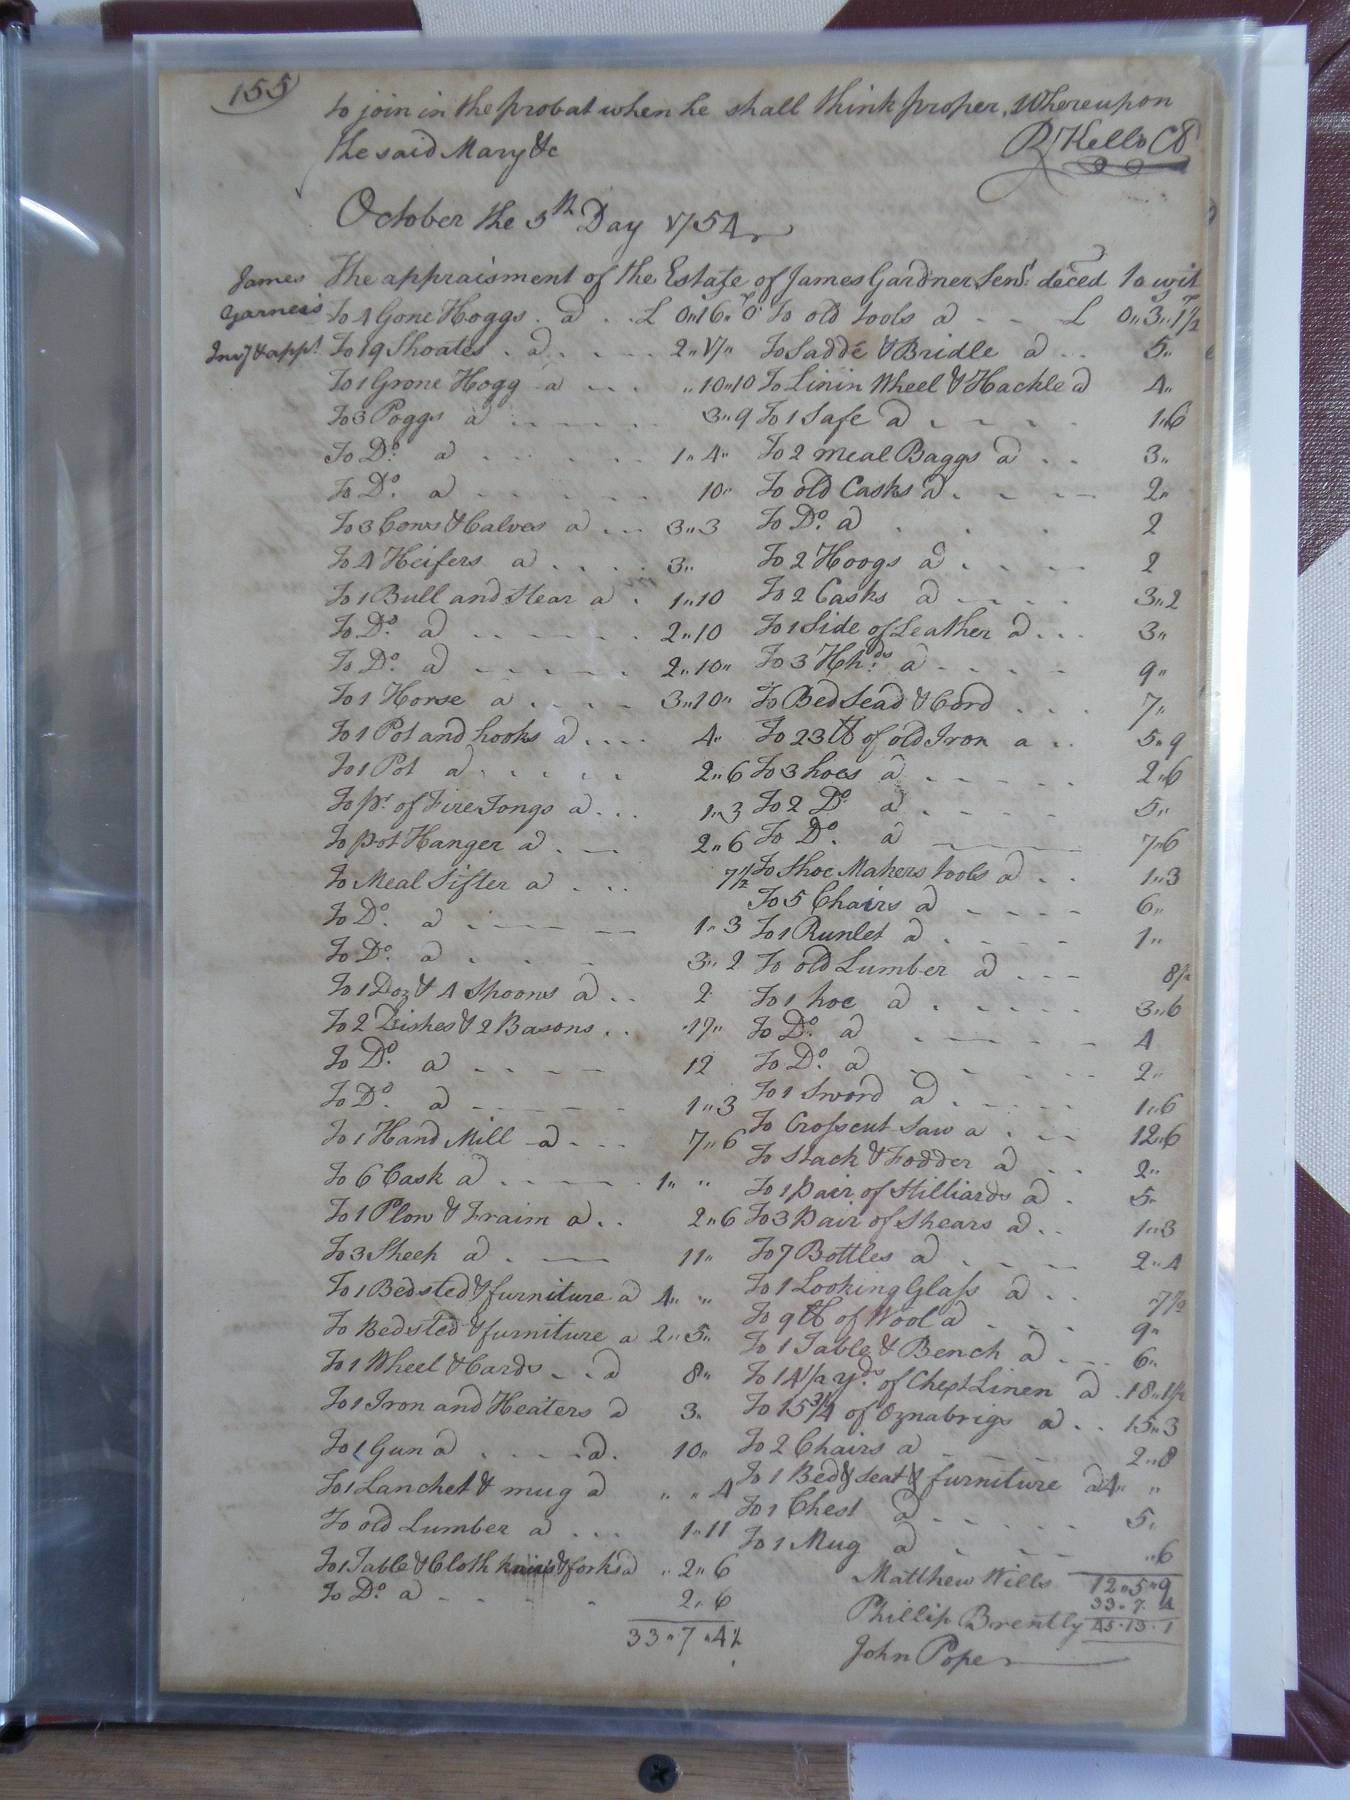 155
to join in the probat when he shall think proper, Whereupon
the said Mary &c
R Kello CC
October the 5th Day 1754
James
Garner's
Inv.y & app.t
The appraisment of the Estate of James Gardner Sen.r deced to wit
To 4 Gone Hoggs . a . . £ 0"16"0
To 19 Shoates . a . . . . 2"17"
To 1 Grone Hogg a . . . "10"10
To 3 Poggs a . . . . 3"9
To D.o a . . . . . 1"4"
To D.o a . . . . . 10"
To 3 Cows & Calves a . . . 3"3
To 4 Heifers a . . . . 3"
To 1 Bull and Stear a . 1"10
To D.o a . . . . . 2"10
To D.o a . . . . . 2"10"
To 1 Horse a . . . . 3"10"
To 1 Pot and hooks a . . . . 4"
To 1 Pot a . . . . . 2"6
To p.r of Fire Tongs a . . . 1"3
To pot Hanger a . . . 2"6
To Meal Sifter a . . . 7½
To D.o a . . . . 1"3
To D.o a . . . . 3"2
To 1 Doz & 4 Spoons a . . 2
To 2 Dishes & 2 Basons . . 17"
To D.o a . . . . 12
To D.o a . . . . 1"3
To 1 Hand Mill a . . . 7"6
To 6 Cask a . . . . . 1" "
To 1 Plow & Fraim a . . 2"6
To 3 Sheep a . . . 11"
To 1 Bedsted & furniture a 4" "
To Bedsted & furniture a 2"5"
To 1 Wheel & Cards . . a 8"
To 1 Iron and Heaters a 3"
To 1 Gun a . . . . a . 10"
To 1 Lanchet & mug a " "4
To old Lumber a . . . 1"11
To 1 Table & Cloth knives & forks a "2"6
To D.o a . . . 2"6
33"7"4½
To old tools a . . . £ 0"3"1½
To Sadde & Bridle a . . 5"
To Linin Wheel & Hackle a 4"
To 1 Safe a . . . . 1"6
To 2 meal Baggs a . . 3"
To old Casks a . . . . 2"
To D.o a . . . 2
To 2 Hoogs a . . . . 2
To 2 Casks a . . . . 3"2
To 1 Side of Leather a . . . 3"
To 3 Hh.ds a . . . . 9"
To Bed Sead & Cord . . . 7"
To 23 lb of old Iron a . . 5"9
To 3 hoes a . . . . . 2"6
To 2 D.o a . . . . 5"
To D.o a . . . . 7"6
To Shoe Makers tools a . . 1"3
To 5 Chairs a . . . . 6"
To 1 Runlet a . . . . 1"
To old Lumber a . . . 8½
To 1 hoe a . . . . . 3"6
To D.o a . . . . . 4
To D.o a . . . . . 2"
To 1 Sword a . . . . . 1"6
To Crosscut Saw a . . . 12"6
To Stack & Fodder a . . 2"
To 1 pair of Stilliards a . 5"
To 3 Pair of Shears a . . 1"3
To 7 Bottles a . . . . 2"4
To 1 Looking Glass a . . 7½
To 9 lb of Wool a . . . 9"
To 1 Table & Bench a . . . 6"
To 14 1/2 y.ds of Chext Linen a . 18"1½
To 15 3/4 of Oznabrigs a . . 15"3
To 2 Chairs a . . . 2"8
To 1 Bed & Seat & furniture a 4" "
To 1 Chest a . . . . . 5"
To 1 Mug a . . . . "6
12"5"9
33"7"4
45"13"1
Matthew Wills
Phillip Brently
John Pope